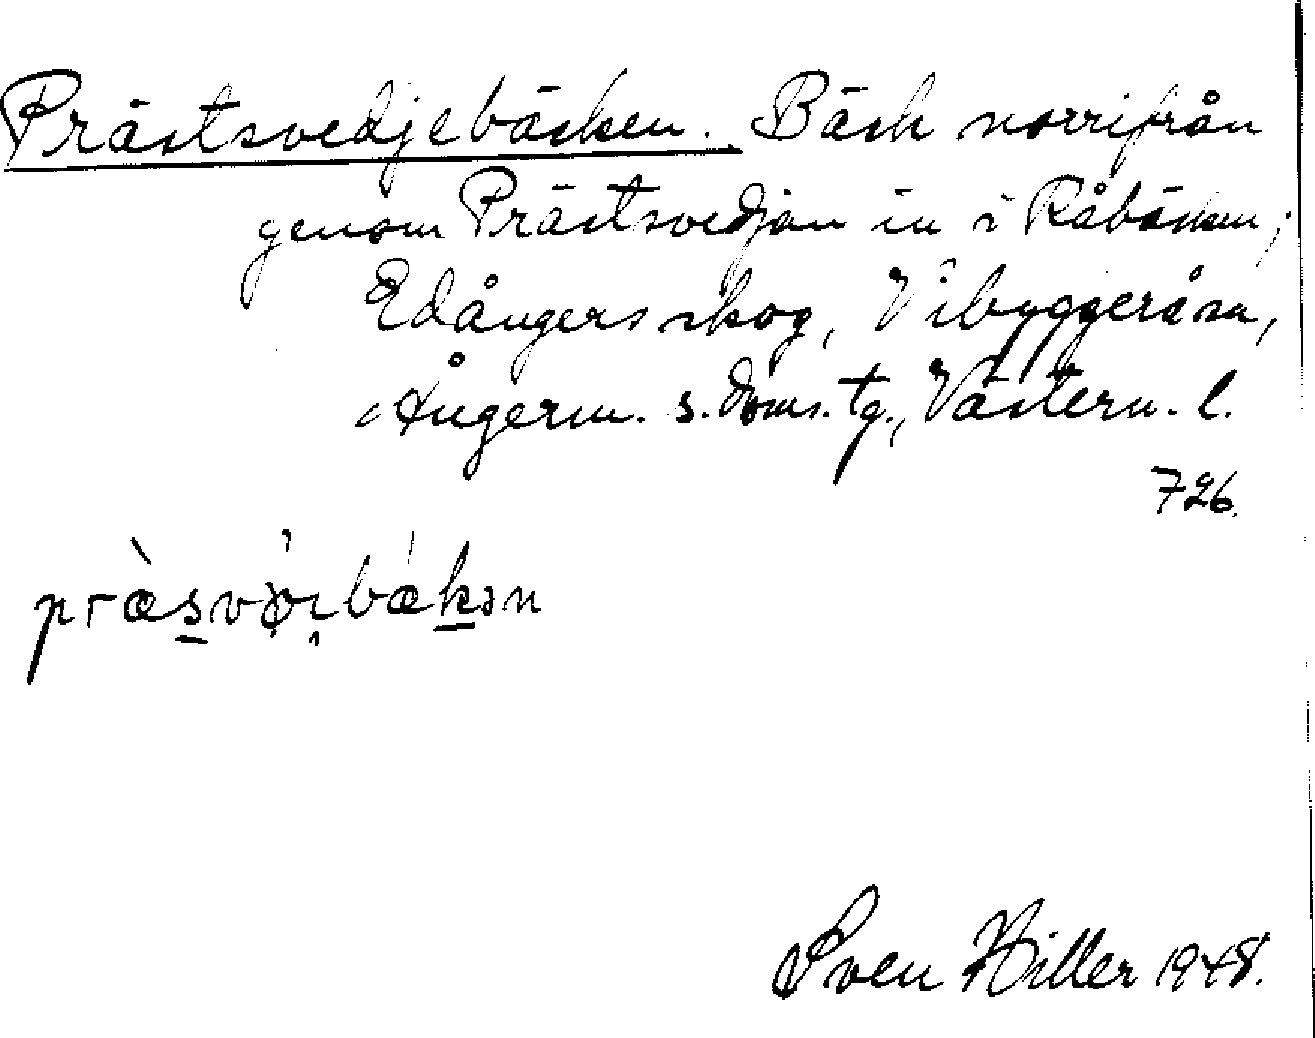 Prästsvedjebäcken. Bäck norrifrån
genom Prästsvedjan in i Råbäcken;
Edångers skog, Vibyggerå sn,
Ångerm. s. doms. tg., Västern. l.
726.
præ̀s̠vø̣i̭bækən
Sven Hiller 1948.